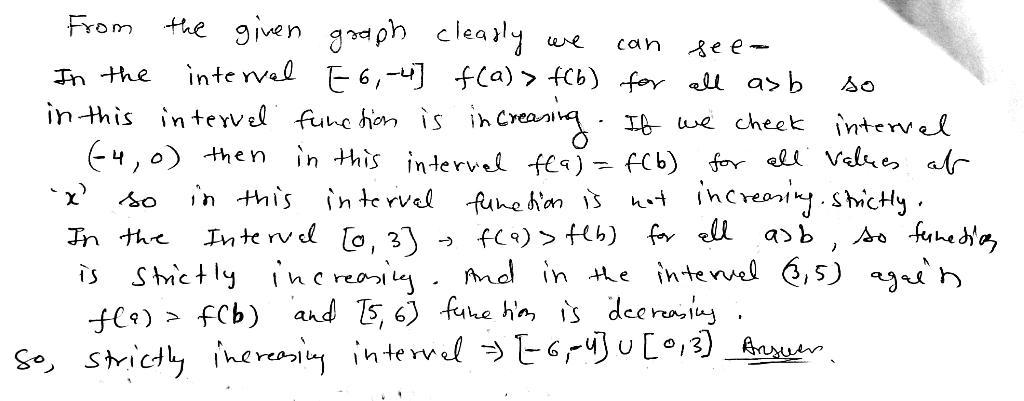 From the given graph clearly we can see-
In the interval [-6,-4] f(a) > f(b) for all a>b so
in this interval function is increasing. If we check interval
(-4,0) then in this interval f(a) = f(b) for all values of
'x' so in this interval function is not increasing. strictly.
In the Interval [0,3] → f(a) > f(b) for all a>b, so function
is strictly increasing. And in the interval (3,5) again
f(a) = f(b) and [5,6] function is decreasing.
So, strictly increasing interval ⇒ [-6,-4] ∪ [0,3] Answer.